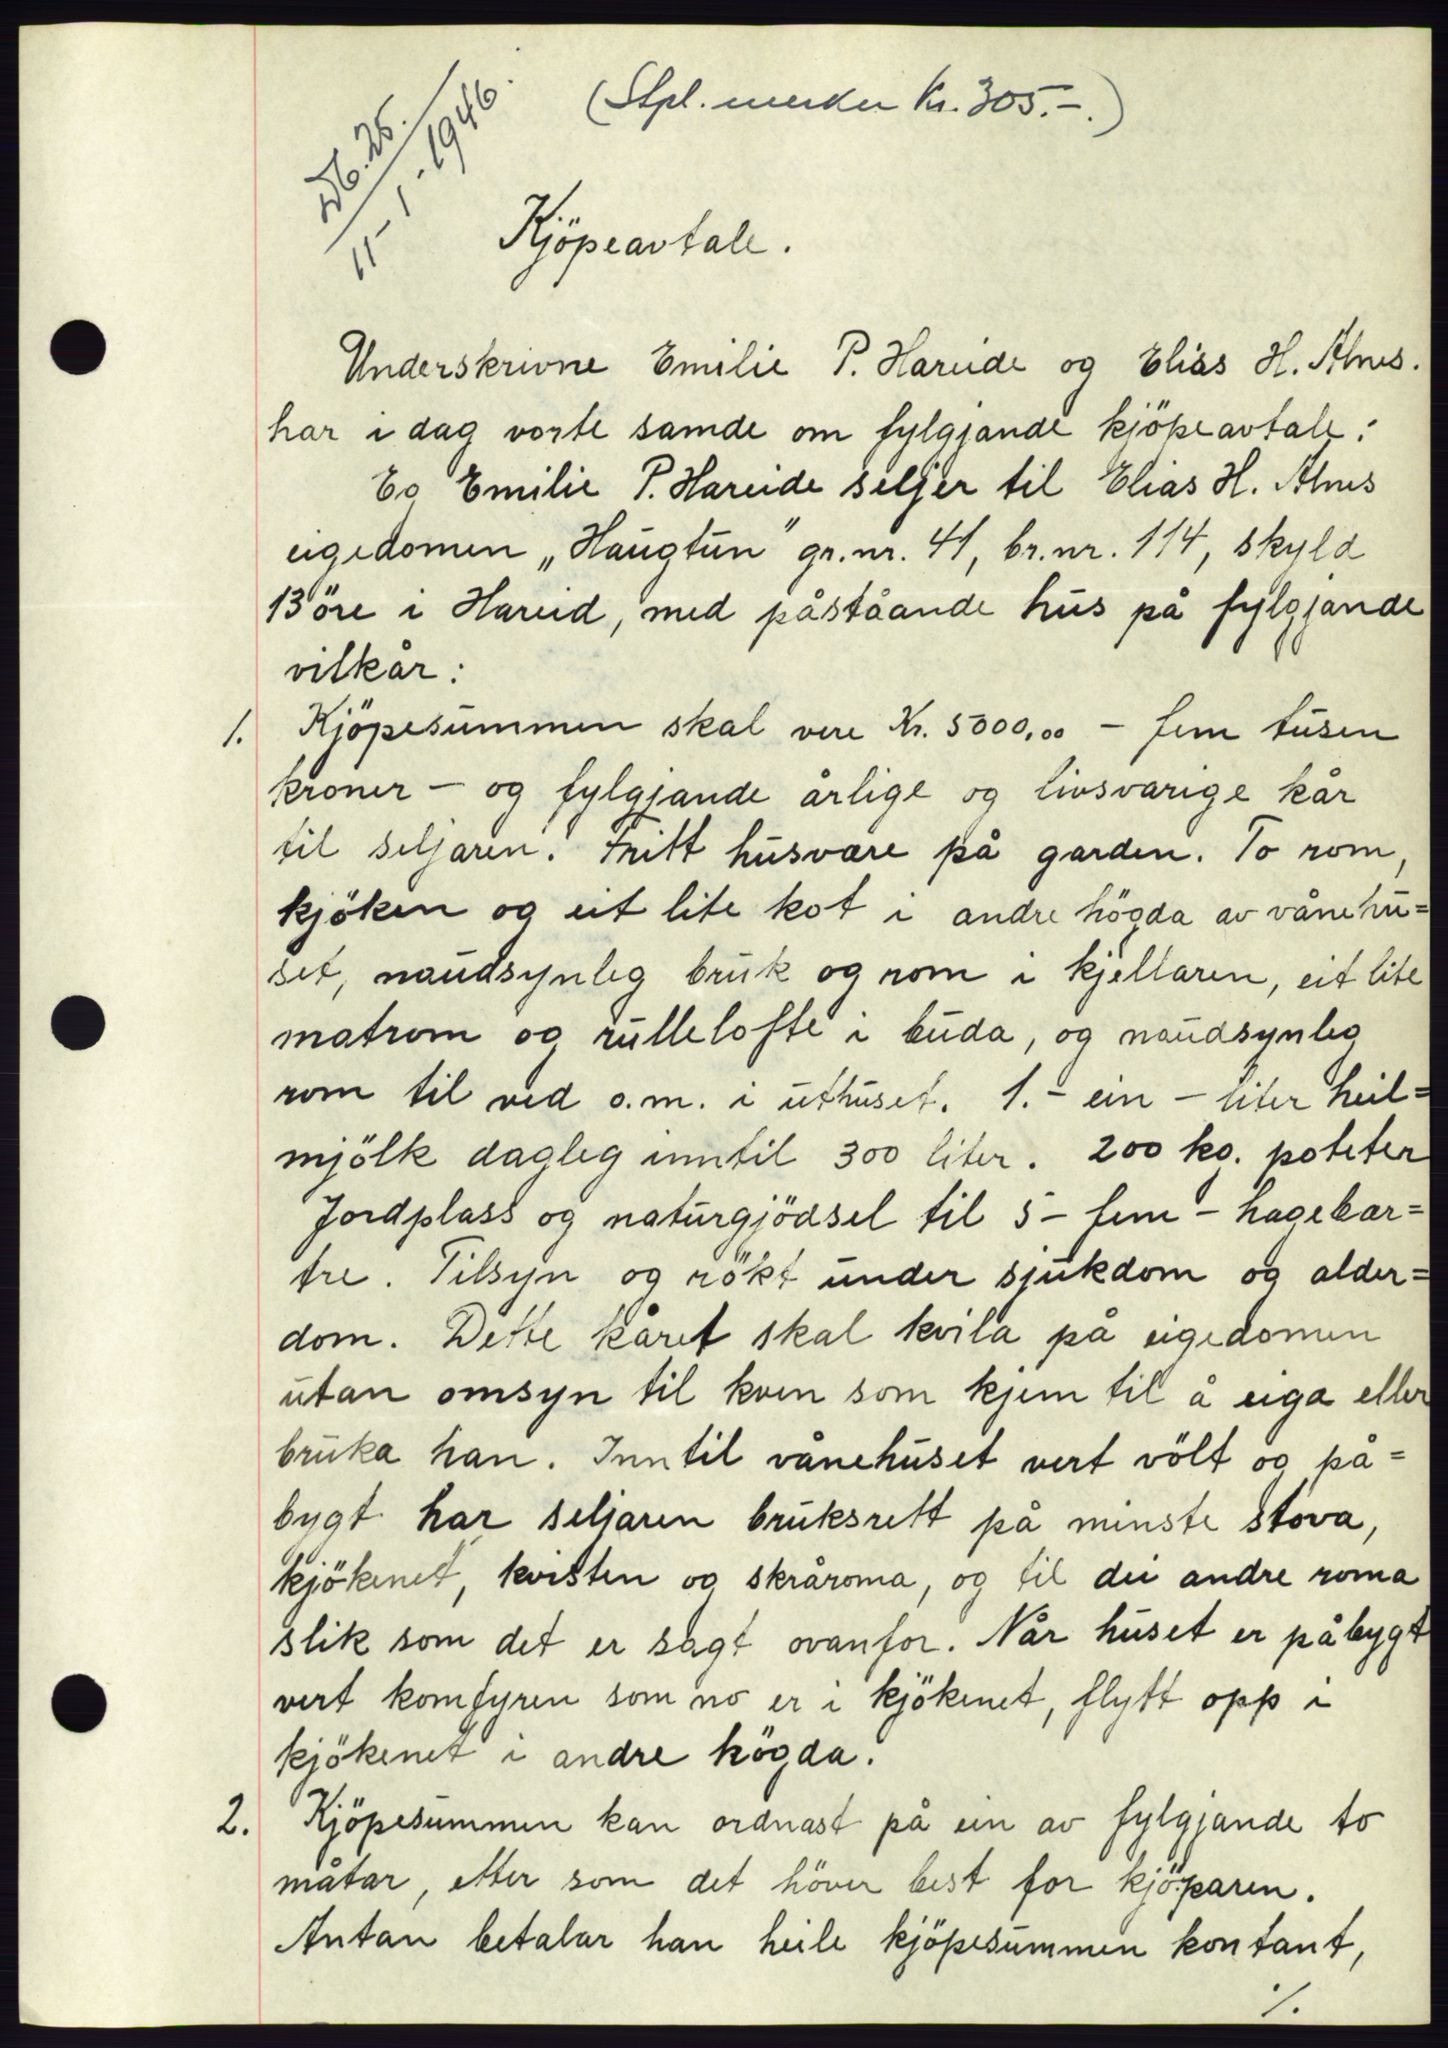 (Stpl. merker Kr. 305.-.)
Db. 25.
11-1-1946.
Kjöpeavtale.
Underskrivne Emilie P. Hareide og Elias H. Alnes.
har i dag vorte samde om fylgjande kjöpeavtale:
Eg Emilie P. Hareide seljer til Elias H. Alnes
eigedomen „Haugtun" gr.nr. 41, br.nr. 114, skyld
13 öre i Hareid, med påståande hus på fylgjande
vilkår:
1. Kjöpesummen skal vere Kr. 5000,00 - fem tusen
kroner - og fylgjande årlige og livsvarige kår
til seljaren. Fritt husvære på garden. To rom,
kjöken og eit lite kot i andre högda av vånehu=
set, naudsynleg bruk og rom i kjellaren, eit lite
matrom og rullelofte i buda, og naudsynleg
rom til ved o.m. i uthuset. 1.- ein - liter heil=
mjölk dagleg inntil 300 liter. 200 kg. poteter
Jordplass og naturgjödsel til 5 - fem - hagebær=
tre. Tilsyn og rökt under sjukdom og alder=
dom. Dette kåret skal kvila på eigedomen
utan omsyn til kven som kjem til å eiga eller
bruka han. Inntil vånehuset vert völt og på=
bygt har seljaren bruksrett på minste stova,
kjökenet, kvisten og skråroma, og til dei andre roma
slik som det er sagt ovanfor. Når huset er påbygt
vert komfyren som no er i kjökenet, flytt opp i
kjökenet i andre högda.
2. Kjöpesummen kan ordnast på ein av fylgjande to
måtar, etter som det höver best for kjöparen.
Antan betalar han heile kjöpesummen kontant,
./.